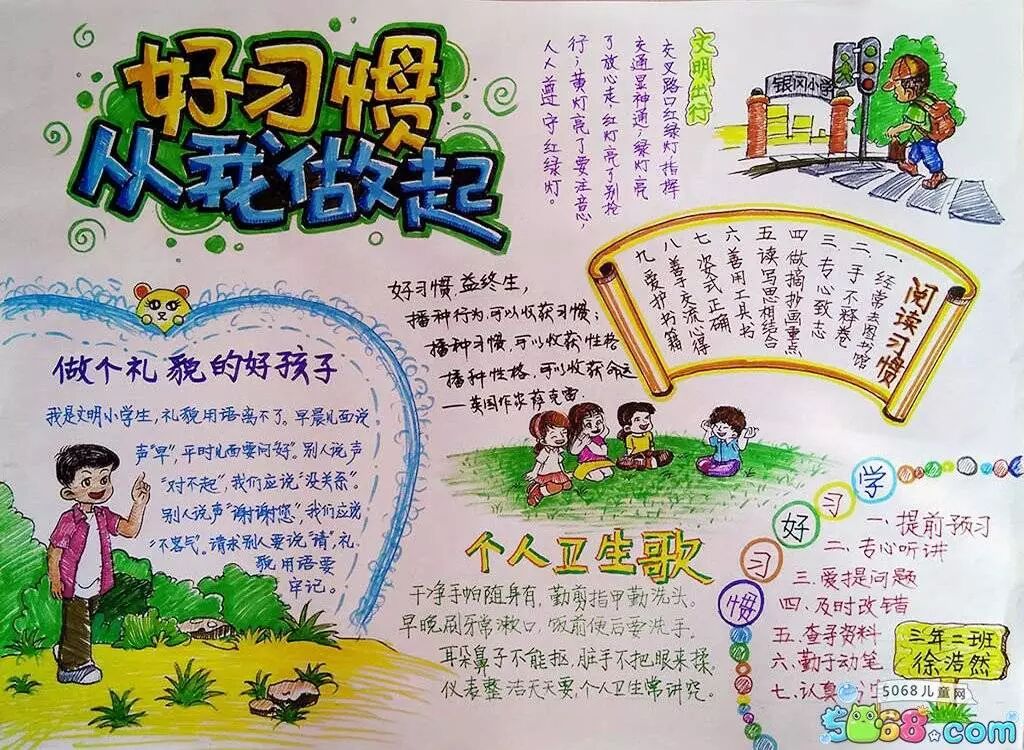 好习惯
从我做起
文明出行
交叉路口红绿灯指挥
交通显神通;绿灯亮
了放心走,红灯亮了别抢
行;黄灯亮了要注意,
人人遵守红绿灯。
银冈小学
阅读习惯
一.经常去图书馆
二.手不释卷
三.专心致志
四做摘抄画重点
五读写思相结合
六善用工具书
七姿式正确
八善于交流心得
九爱护书籍
好习惯,益终生,
播种行为,可以收获习惯;
播种习惯,可以收获性格
播种性格,可以收获命运
——英国作家萨克雷
做个礼貌的好孩子
我是文明小学生,礼貌用语离不了。早晨见面说
声“早”,平时见面要问“好”。别人说声
“对不起”,我们应说“没关系”。
别人说声“谢谢您”,我们应说
“不客气”。请求别人要说“请”,礼
貌用语要
牢记。
个人卫生歌
干净手怕随身有,勤剪指甲勤洗头。
早晚刷牙常漱口,饭前便后要洗手。
耳朵鼻子不能抠,脏手不把眼来揉。
仪表整洁天天要,个人卫生常讲究。
学习好习惯
一、提前预习
二、专心听讲
三、爱提问题
四、及时改错
五、查寻资料
六、勤于动笔
七、认真
三年二班
徐浩然
5068儿童网
5068.com